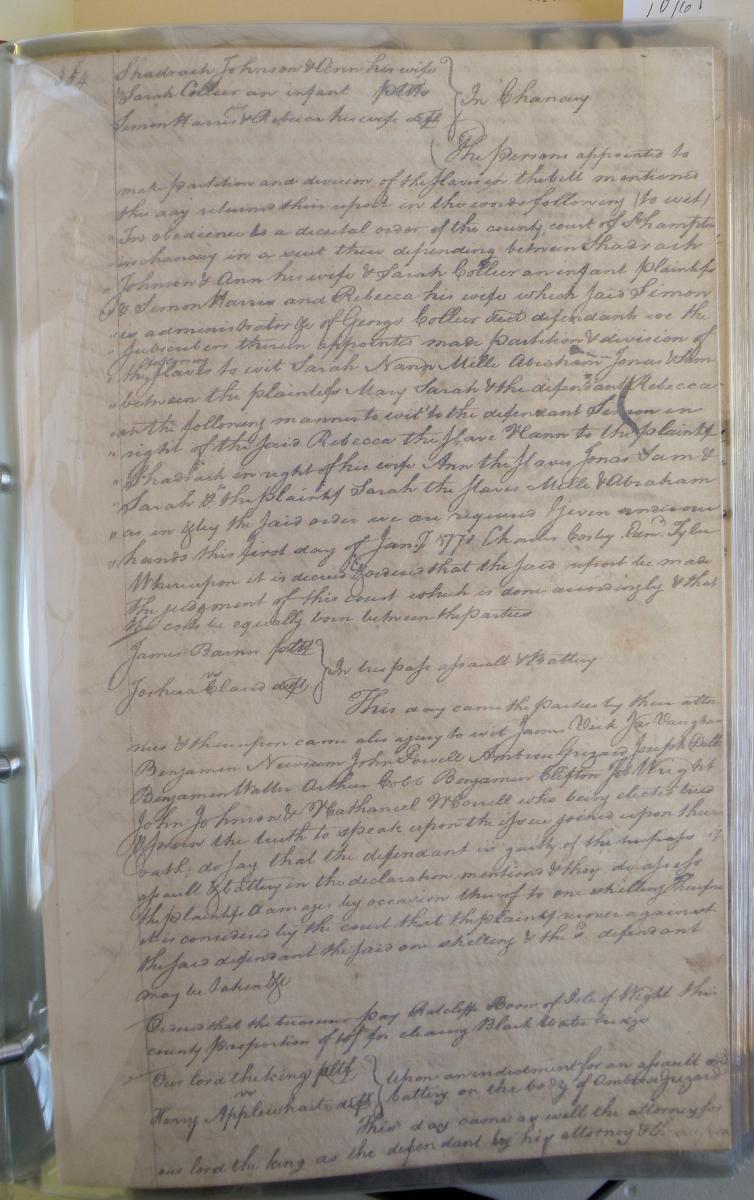 10/61
354
Shadrach Johnson & Ann his wife
Sarah Collier an infant pltfs
vs
Simon Harris & Rebecca his wife deft
In Chancery
The persons appointed to
make partition and division of the slaves in the bill mentioned
this day returned their report in the words following (to wit)
In obedience to a decretal order of the county court of Sohampton
in chancery in a suit there depending between Shadrach
Johnson & Ann his wife & Sarah Collier an infant plaintiffs
& Simon Harris and Rebecca his wife which said Simon
is administrator &c of George Collier decd defendants we the
subscribers therein appointed made partition & division of
the following slaves to wit Sarah Nann Mille Abraham Jonas & Sam
between the plaintiffs Mary Sarah & the defendant Rebecca
in the following manner to wit to the defendant Simon in
right of the said Rebecca the slave Nann to the plaintiff
Shadrach in right of his wife Ann the slaves Jonas Sam &
Sarah & the plaintiff Sarah the slaves Mille & Abraham
as in & by the said order we are required Given under our
hands this first day of Jany 1771 Charles Cosby Edwd. Tyler
Whereupon it is decreed & ordered that the said report be made
the judgment of this court which is done accordingly & that
the costs be equally born between the parties
James Barnes pltf
vs
Joshua Claud deft
In trespass assault & Battery
This day came the parties by their attor
nies & thereupon came also a jury to wit James Vick Jas Vaughan
Benjamin Newsum John Powell Ambrose Grizard Joseph
Benjamin Waller Arthur Cobb Benjamin Clifton Job Wright
John Johnson & Nathaniel Worrell who being elected tried
& sworn the truth to speak upon the issue joined upon their
oath, do say that the defendant is guilty of the trespass
assault & battery in the declaration mentioned & they do assess
the plaintiffs damages by occasion thereof to one shilling Therefore
it is considered by the court that the plaintiff recover against
the said defendant the said one shilling & the sd. defendant
may be taken &c
Ordered that the treasurer pay Ratcliff Boon of Isle of Wight this
county proportion of for clearing Black Water bridge
Our lord the king pltf
vs
Henry Applewhaite deft
Upon an indictment for an assault and
battery on the body of Ambrose Grizard
This day came as well the attorney for
our lord the king as the defendant by his attorney &